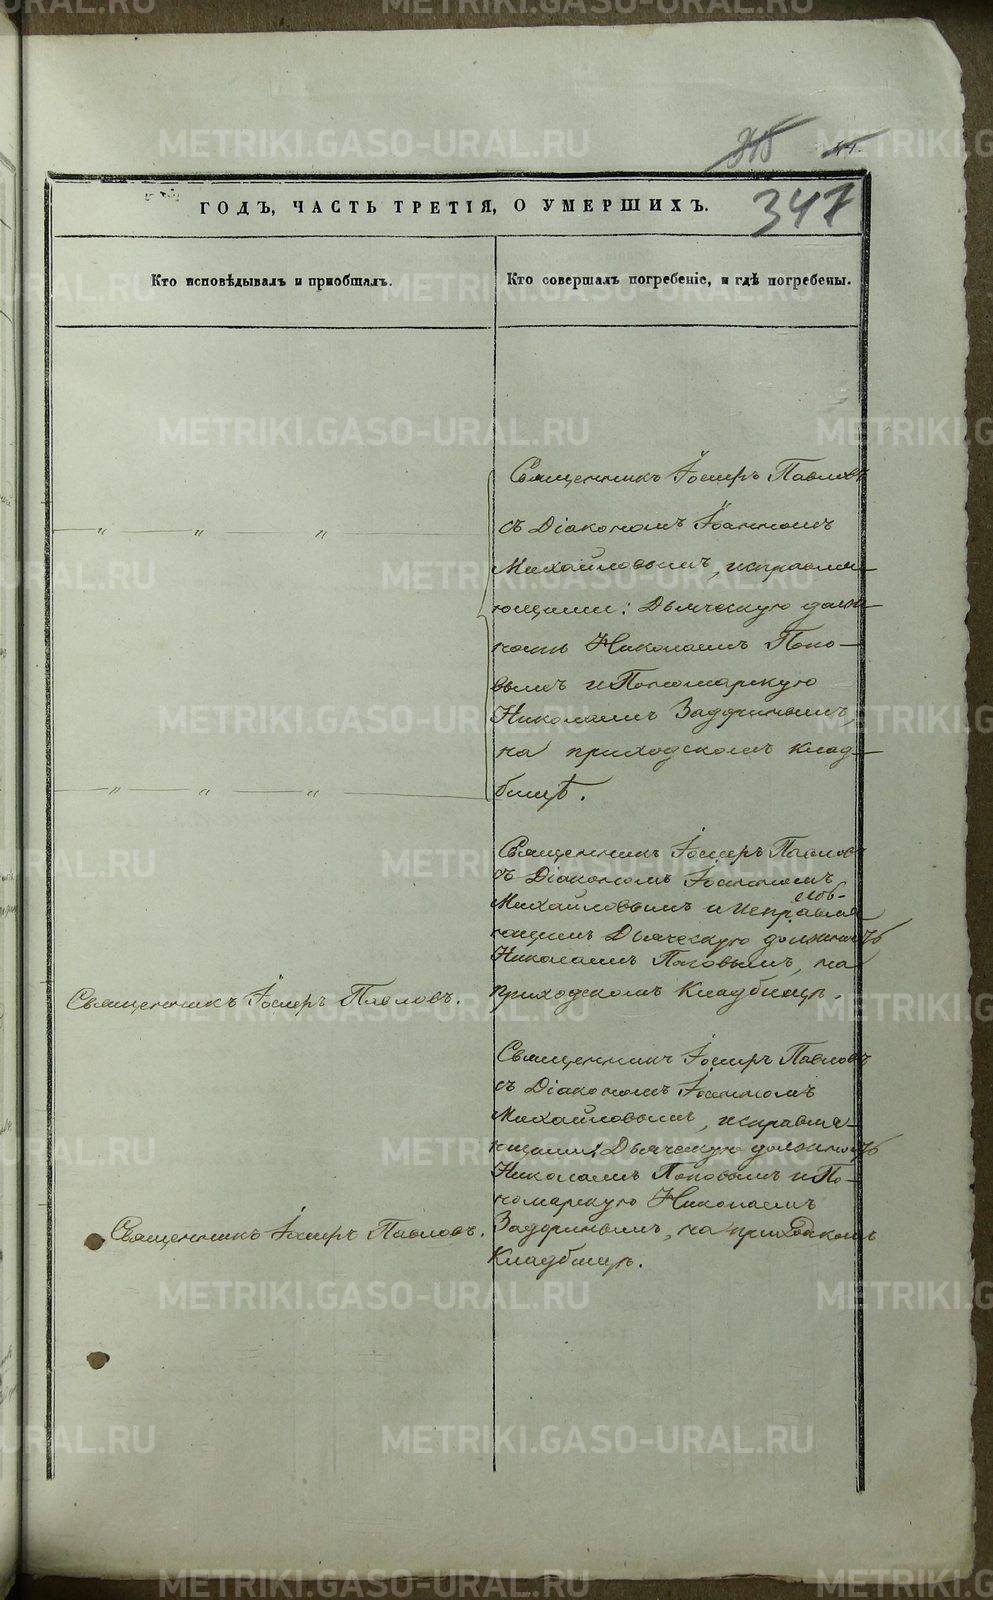 347
ГОДЪ, ЧАСТЬ ТРЕТІЯ, О УМЕРШИХЪ.
Кто исповѣдывалъ и пріобщалъ.
Кто совершалъ погребеніе, и гдѣ погребены.
Священникъ Іосифъ Павловъ
съ Діакономъ Іоанномъ
Михайловымъ, исправля-
ющими: Дьяческую долж-
ность Николаемъ Попо-
вымъ и Пономарскую
Николаемъ Задоринымъ,
на приходскомъ клад-
бищѣ.
— „ — „ — „ —
— „ — „ — „ —
Священникъ Іосифъ Павловъ
съ Діакономъ Іоанномъ
Михайловымъ и исправля-
ющимъ Дьяческую должность
Николаемъ Поповымъ, на
приходскомъ Кладбищѣ.
Священникъ Іосифъ Павловъ.
Священникъ Іосифъ Павловъ
съ Діакономъ Іоанномъ
Михайловымъ, исправля-
ющими: Дьяческую должность
Николаемъ Поповымъ и По-
номарскую Николаемъ
Задоринымъ, на приходскомъ
Кладбищѣ.
Священникъ Іосифъ Павловъ.
METRIKI.GASO-URAL.RU